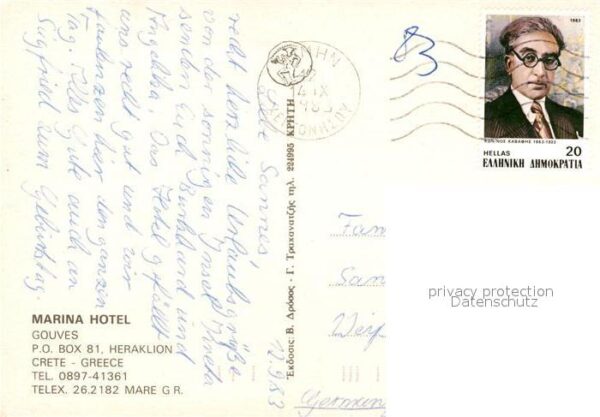 12.9.83
Liebe Sannis,
recht herzliche Urlaubsgrüße
von der sonnigen Insel Kreta
senden Euch Burkhard und
Angelika. Das Hotel gefällt
uns recht gut und wir
faulenzen hier den ganzen
Tag. Alles Gute auch an
Siegfried zum Geburtstag.
MARINA HOTEL
GOUVES
P.O. BOX 81, HERAKLION
CRETE - GREECE
TEL. 0897-41361
TELEX. 26.2182 MARE G R.
Εκδοσις: Β. Δρόσος - Γ. Τραχανατζής τηλ. 224995 ΚΡΗΤΗ
83
1983
ΚΩΝ/ΝΟΣ ΚΑΒΑΦΗΣ 1863-1933
HELLAS 20
ΕΛΛΗΝΙΚΗ ΔΗΜΟΚΡΑΤΙΑ
Fam
San
Germany
privacy protection
Datenschutz